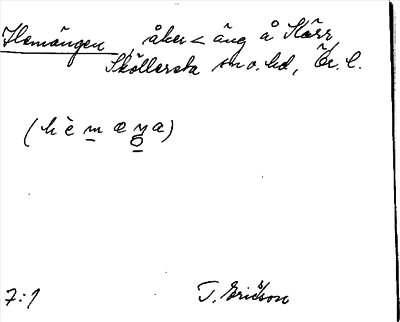 Hemängen, åker < äng å Körr
Sköllersta sn o. hd, Ör. l.
(hèmæŋa)
7:1 T. Ericson